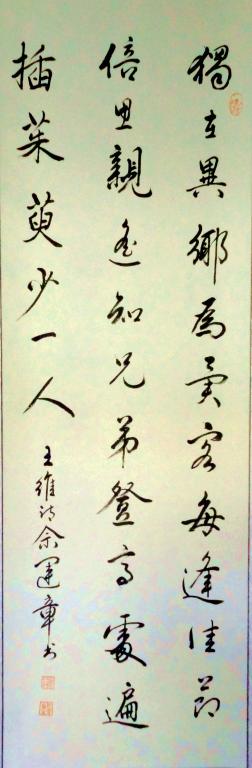 獨在異鄉為異客每逢佳節
倍思親遙知兄弟登高處遍
插茱萸少一人
王維詩余章书